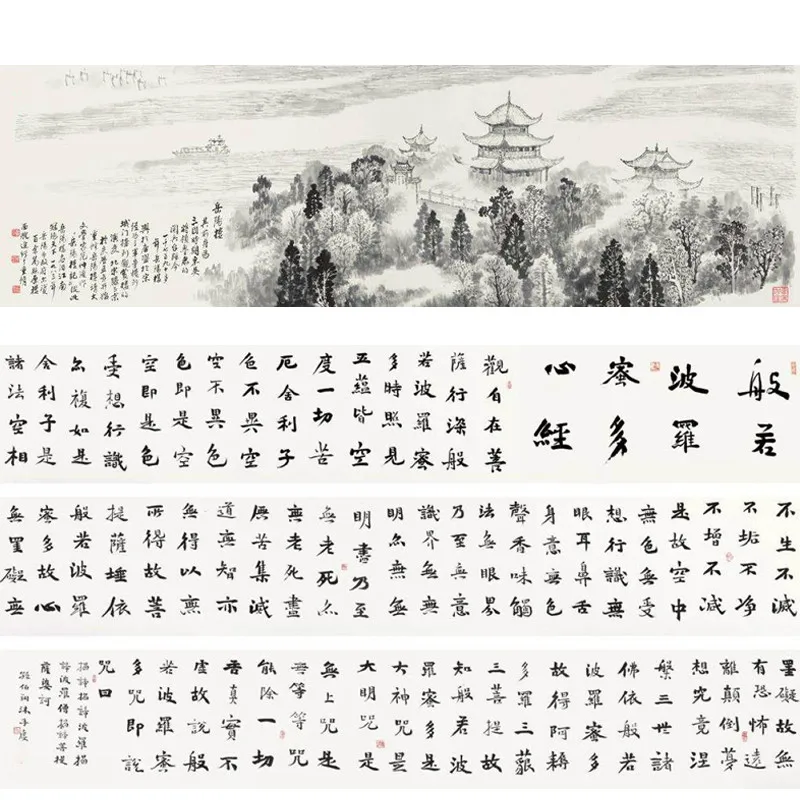 岳陽樓
其前身為
三國時期東吳
岳陽樓
般若
波羅
蜜多
心經
觀自在菩
薩行深般
若波羅蜜
多時照見
五蘊皆空
度一切苦
厄舍利子
色不異空
空不異色
色即是空
空即是色
受想行識
亦複如是
舍利子是
諸法空相
不生不滅
不垢不净
不增不減
是故空中
無色無受
想行識無
眼耳鼻舌
身意無色
聲香味觸
法無眼界
乃至無意
識界無無
明亦無無
明盡乃至
無老死亦
無老死盡
無苦集滅
道無智亦
無得以無
所得故菩
提薩埵依
般若波羅
蜜多故心
無罣礙無
罣礙故無
有恐怖遠
離顛倒夢
想究竟涅
槃三世諸
佛依般若
波羅蜜多
故得阿耨
多羅三藐
三菩提故
知般若波
羅蜜多是
大神咒是
大明咒是
無上咒是
無等等咒
能除一切
苦真實不
虛故說般
若波羅蜜
多咒即說
咒曰
揭諦揭諦波羅揭
諦波羅僧揭諦菩提
薩婆訶